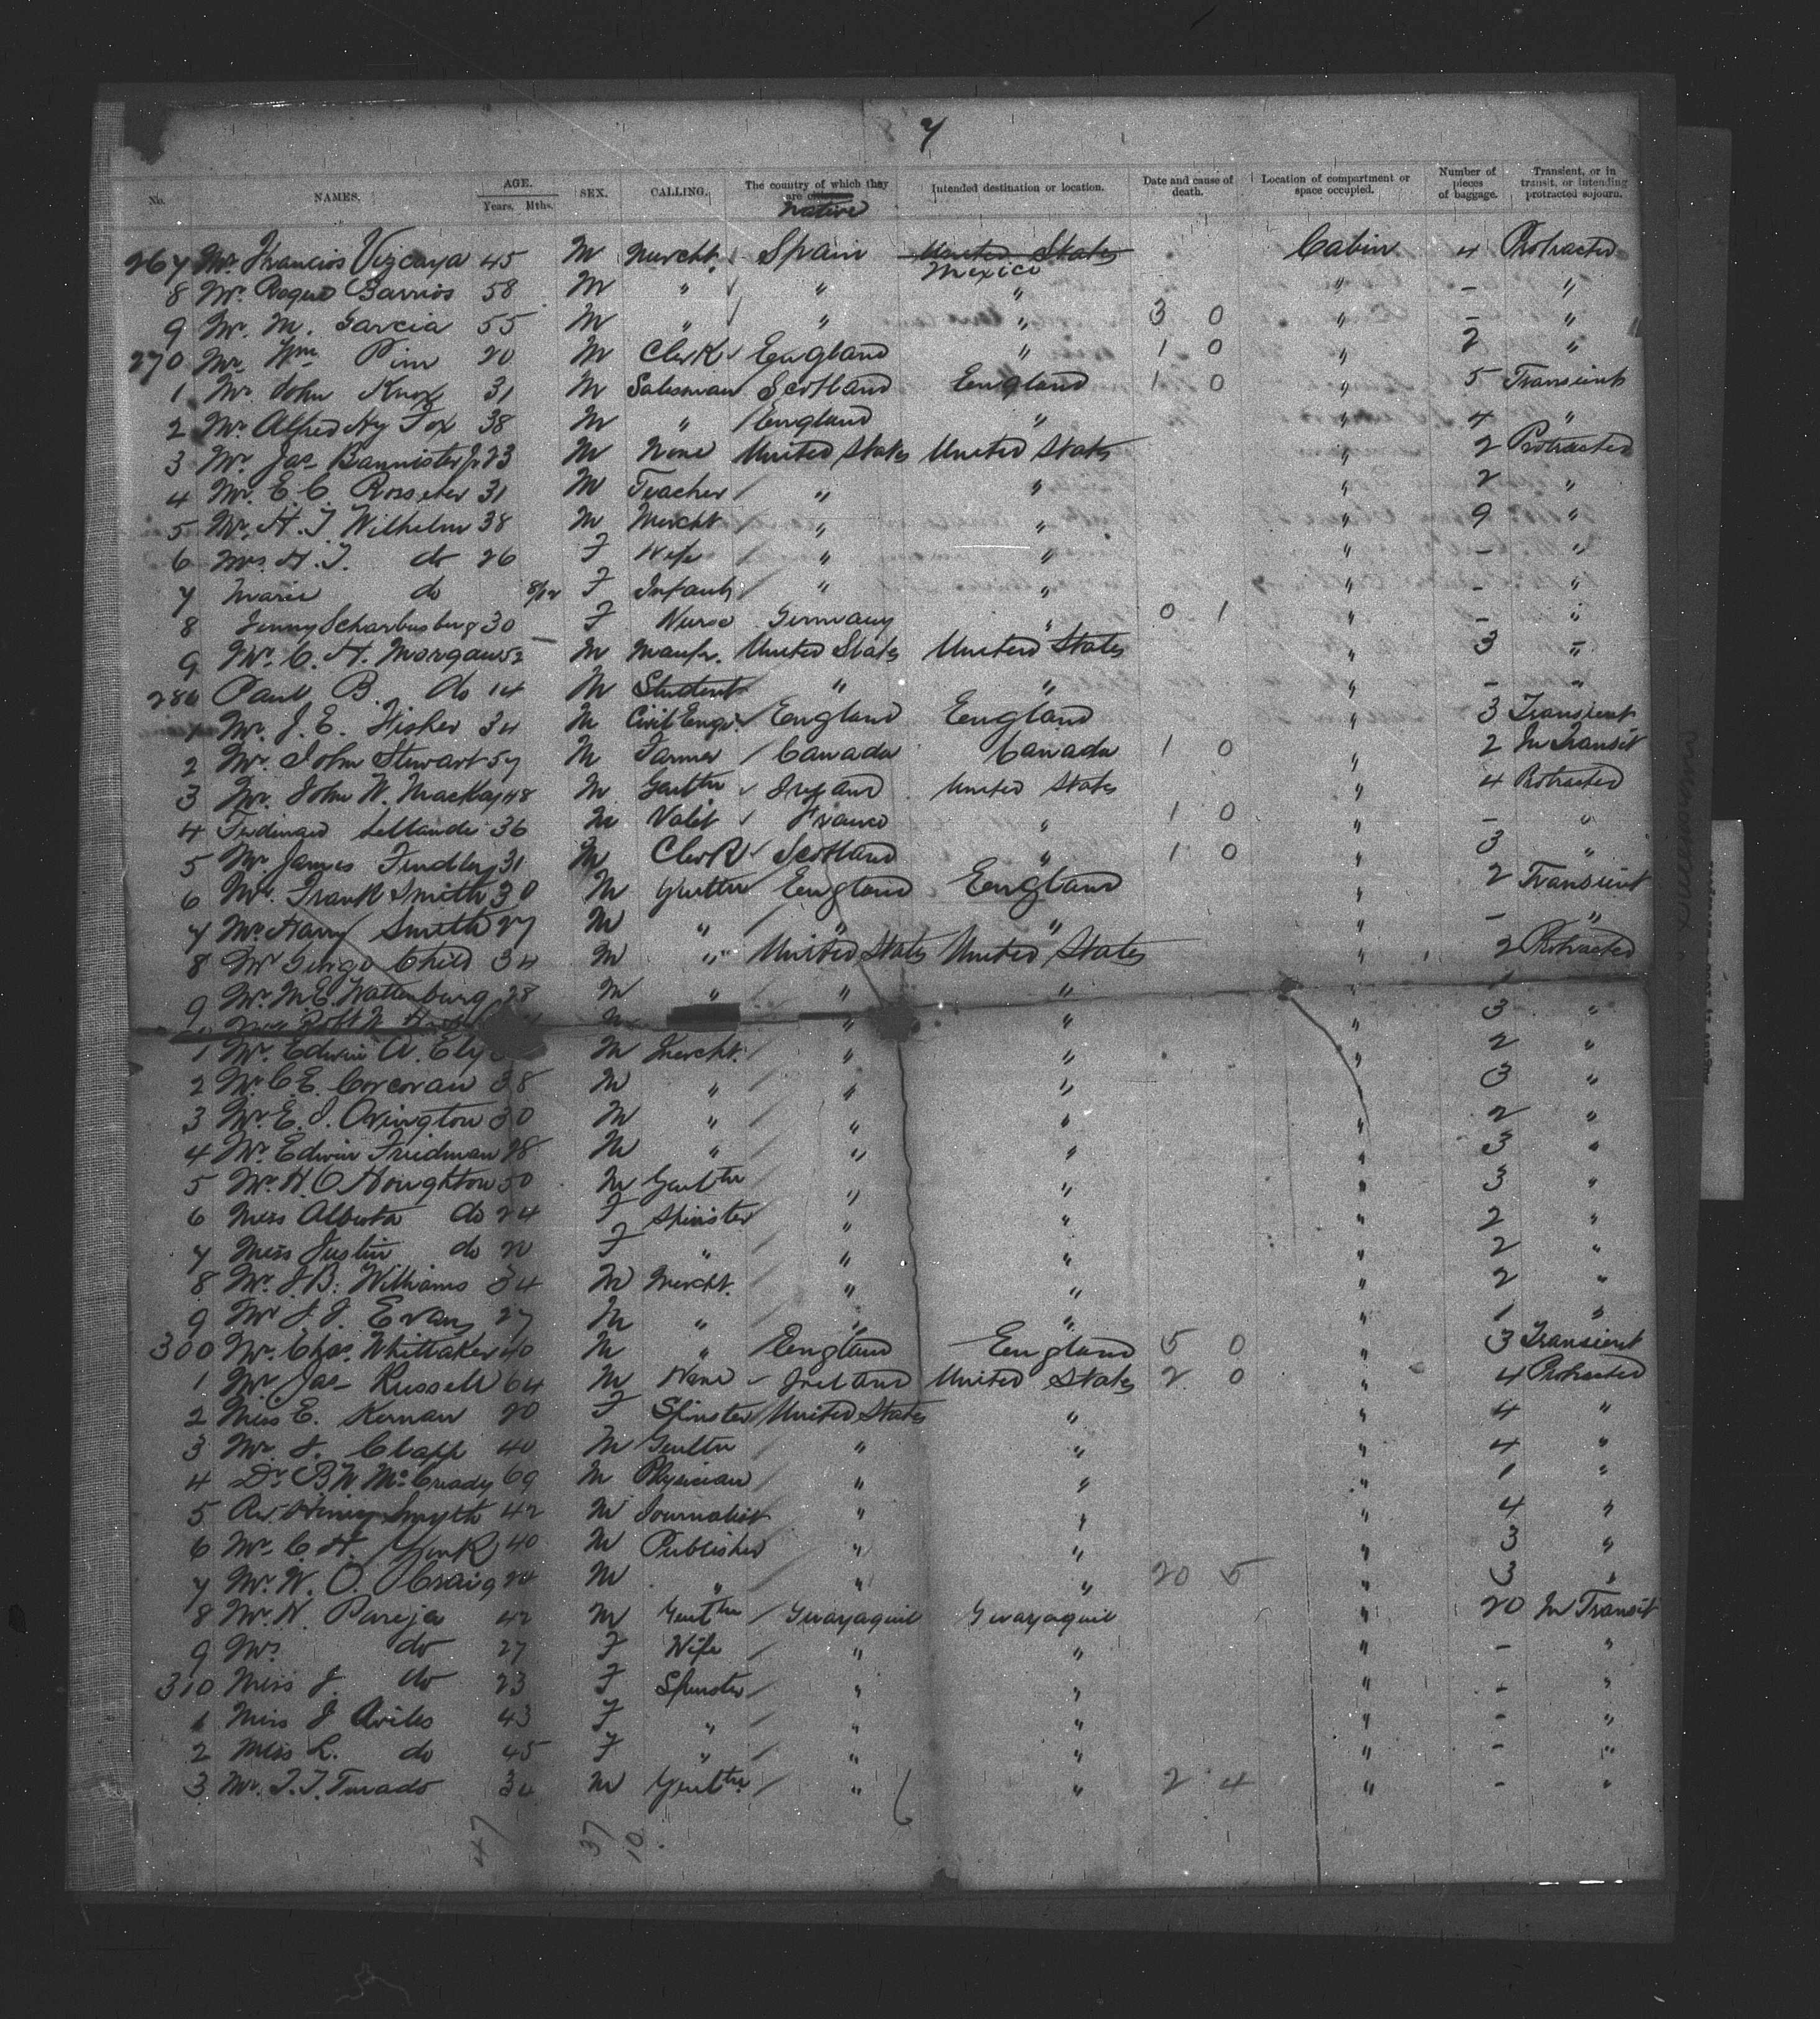 7
No. NAMES. AGE. Years. Mths. SEX. CALLING. The country of which they are native Intended destination or location. Date and cause of death. Location of compartment or space occupied. Number of pieces of baggage. Transient, or in transit, or intending protracted sojourn.
267 Mr. Francios Vizcaya 45 M Mercht. Spain United States Mexico Cabin 4 Protracted
8 Mr. Roque Barrios 58 M " " " " - "
9 Mr. M. Garcia 55 M " " " 3 0 " - "
270 Mr. Wm. Pim 20 M Clerk England " 1 0 " 2 "
1 Mr. John Knox 31 M Salesman Scotland England 1 0 " 5 Transient
2 Mr. Alfred Hy Fox 38 M " England " " 4 "
3 Mr. Jas. Bannister Jr 23 M None United States United States " 2 Protracted
4 Mr. E. C. Rosseter 31 M Teacher " " " 2 "
5 Mr. H. T. Wilhelm 38 M Mercht " " " 9 "
6 Mrs. H. T. do 26 F Wife " " " - "
7 Marie do 8/12 F Infant " " " - "
8 Jenny 30 F Nurse Germany " 0 1 " - "
9 Mr. C. H. Morgan 52 M Manfr. United States United States " 3 "
280 Paul B. do 14 M Student " " " - "
1 Mr. J. E. Fisher 34 M Civil Engr. England England " 3 Transient
2 Mr. John Stewart 57 M Farmer Canada Canada 1 0 " 2 In Transit
3 Mr. John W. Mackay 48 M Gentln Ireland United States " 4 Protracted
4 Ferdinand 36 M Valet France " 1 0 " - "
5 Mr. James Findlay 31 M Clerk Scotland " 1 0 " 3 "
6 Mr. Frank Smith 30 M Gentln England England " 2 Transient
7 Mr. Harry Smith 27 M " " " " - "
8 Mr. George Child 34 M " United States United States " 2 Protracted
9 Mr. M. E. Wattenburg 28 M " " " "
Robt M " " " 3 "
1 Mr. Edwin A. Ely M Mercht. " " " 2 "
2 Mr. C. E. Corcoran 38 M " " " " 3 "
3 Mr. E. J. Ovington 30 M " " " " 2 "
4 Mr. Edwin Friedman 28 M " " " " 3 "
5 Mr. H. O. Houghton 50 M Gentln " " " 3 "
6 Miss Alberta do 24 F Spinster " " " 2 "
7 Miss Justin do 20 F " " " " 2 "
8 Mr. J. B. Williams 34 M Mercht. " " " 2 "
9 Mr. J. J. Evans 27 M " " " " 1 "
300 Mr. Chas. Whittaker 40 M " England England 5 0 " 3 Transient
1 Mr. Jas. Russell 64 M None Ireland United States 2 0 " 4 Protracted
2 Miss E. Kernan 20 F Spinster United States " " 4 "
3 Mr. J. Clapp 40 M Gentln " " " 4 "
4 Dr. B. W. McCready 69 M Physician " " " 1 "
5 Rev. Henry Smyth 42 M Journalist " " " 4 "
6 Mr. C. H. York 40 M Publisher " " " 3 "
7 Mr. W. O. Craig 24 M " " " 20 5 " 3 "
8 Mr. N. Pareja 42 M Gentln Guayaquil Guayaquil " 20 In Transit
9 Mrs. do 27 F Wife " " " - "
310 Miss J. do 23 F Spinster " " " - "
1 Miss J Aviles 43 F " " " " - "
2 Miss L. do 45 F " " " " - "
3 Mr. J. J. Turado 34 M Gentln " " 2 4 " - "
47 37 10